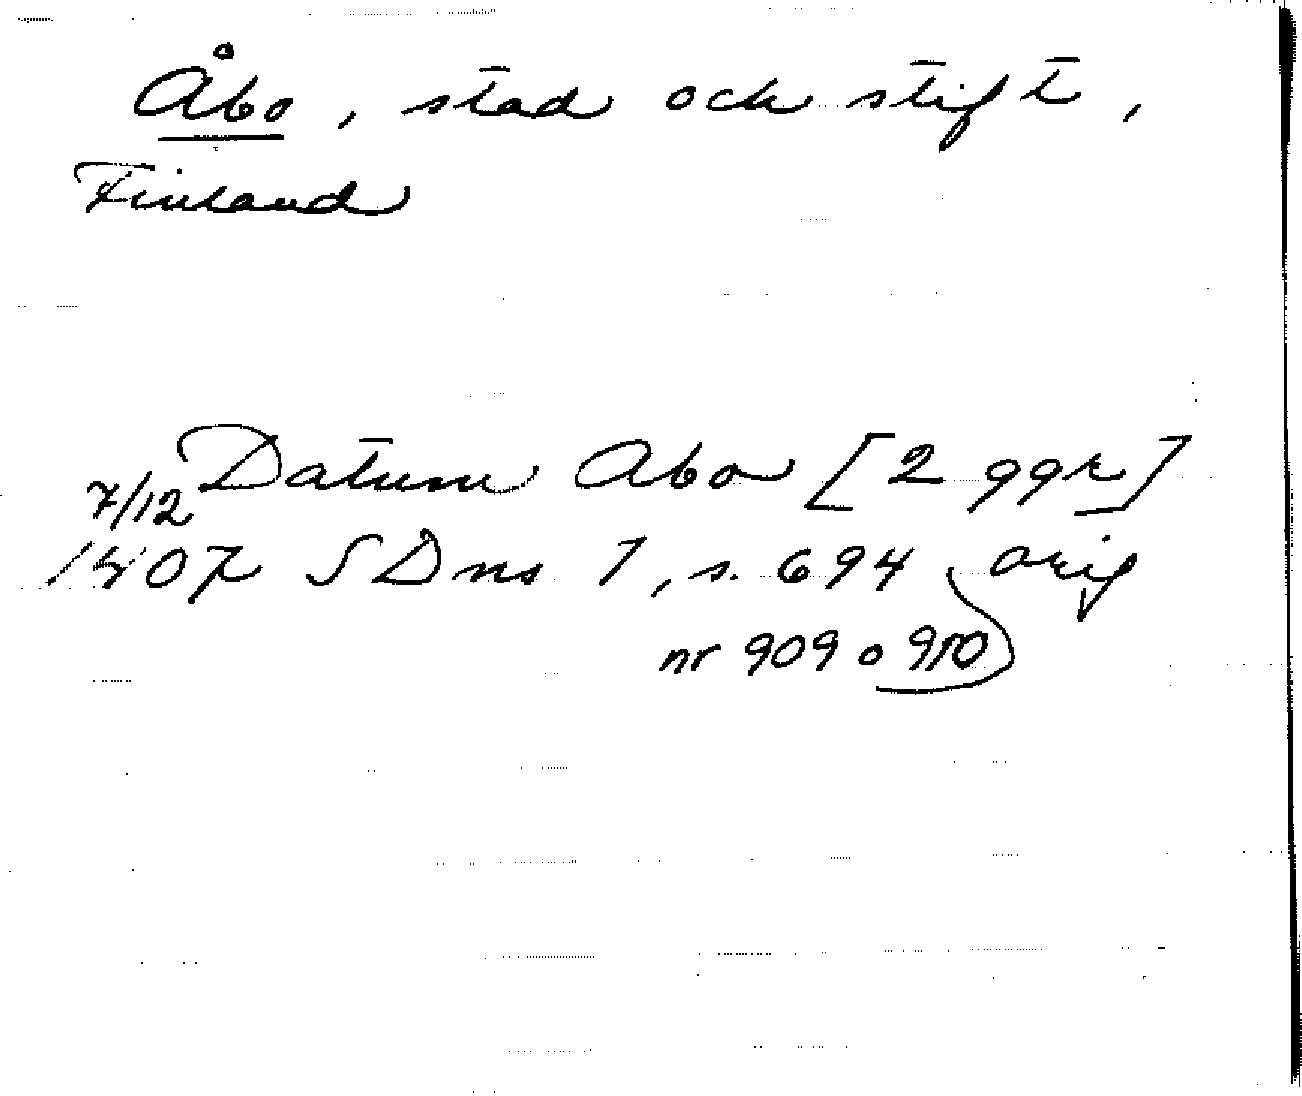 Åbo, stad och stift,
Finland
Datum Abo [2 ggr]
7/12
1407 SDns 1, s. 694 orig
nr 909 o 910